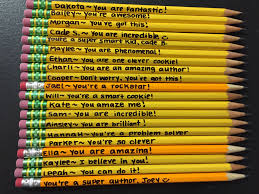 Dakota~ You are fantastic!
Bailey~ You're awesome!
Morgan~ You've got this!
Cade S.~ You are incredible
You're a super smart kid, Cade B.
Maylee~ You are phenomenal!
Ethan~ You are one clever cookie!
Charli~ You are an amazing author!
Cooper~ Don't worry, you've got this!
Jael~ You're a rockstar!
Will~ You're a smart cookie!
Kate~ You amaze me!
Sam~ You are incredible!
Ainsley~ You are brilliant!
Hannah~ You're a problem solver
Parker~ You're so clever
Ella~ You are amazing!
Kaylee~ I believe in you!
Leah~ You can do it!
You're a super author, Joey